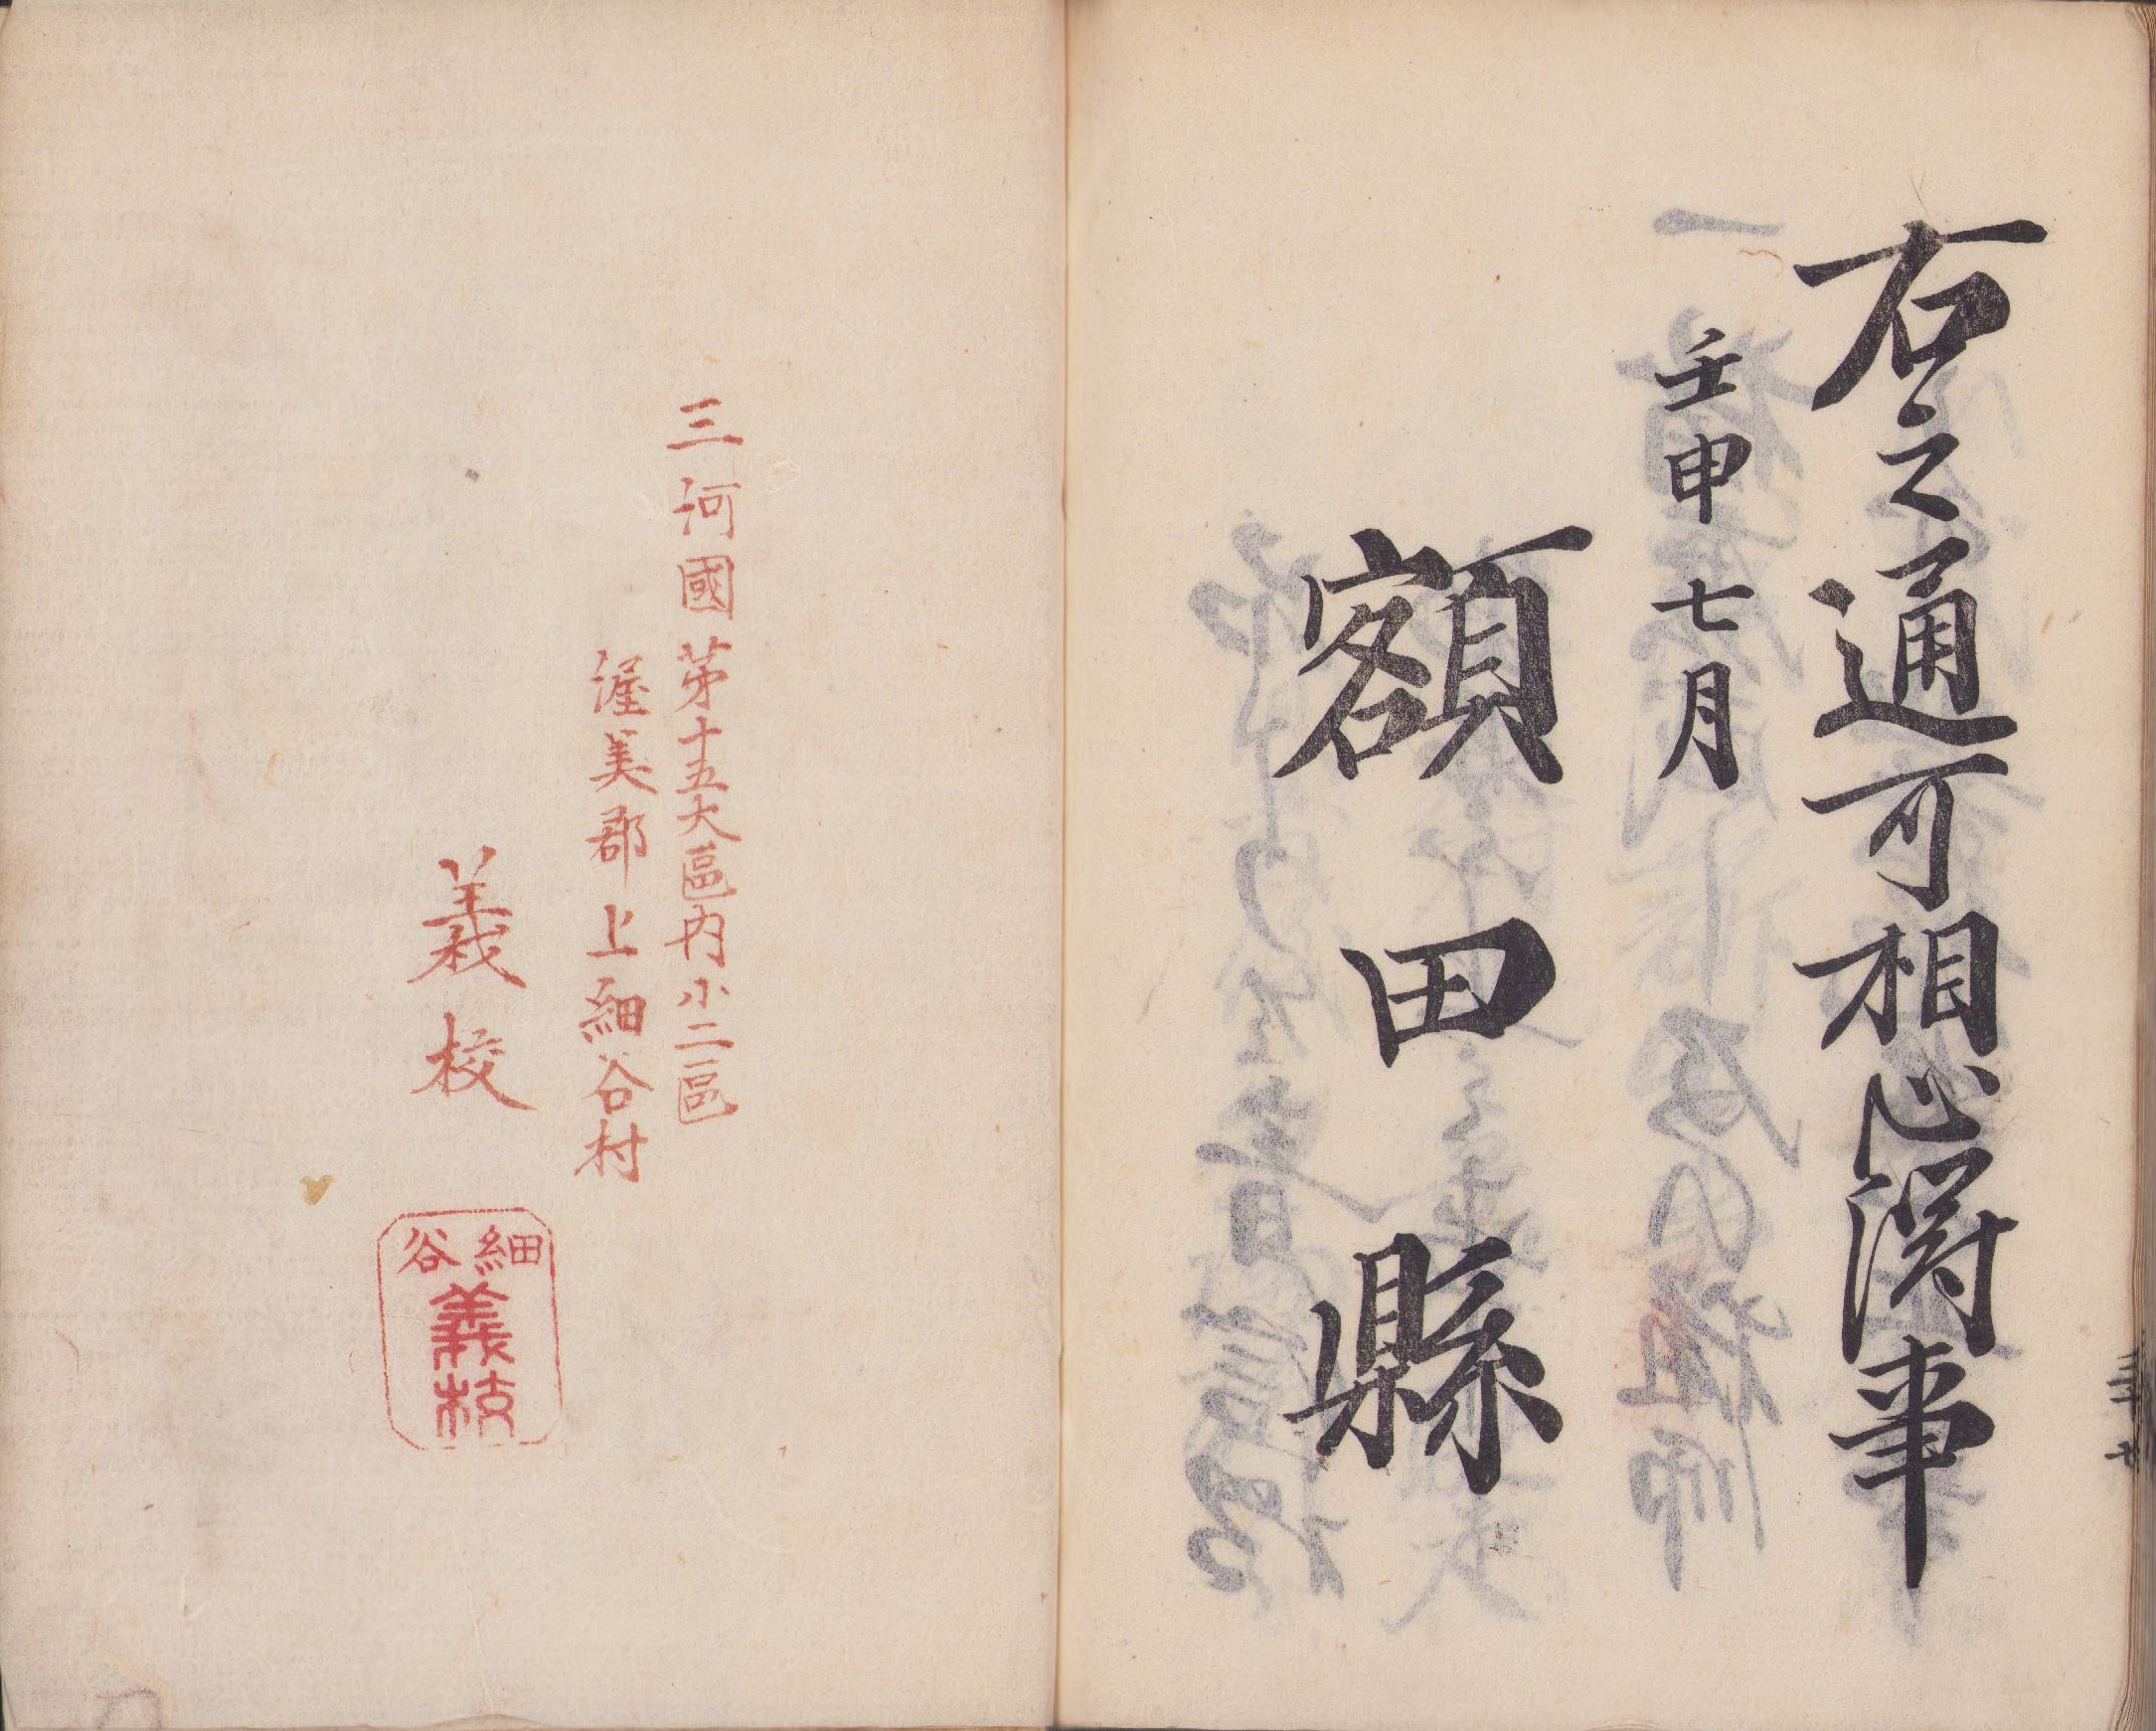 右之通可相心得事
壬申七月
額田縣
三河國第十五大區内小二區
渥美郡上細谷村
義校
細谷
義校